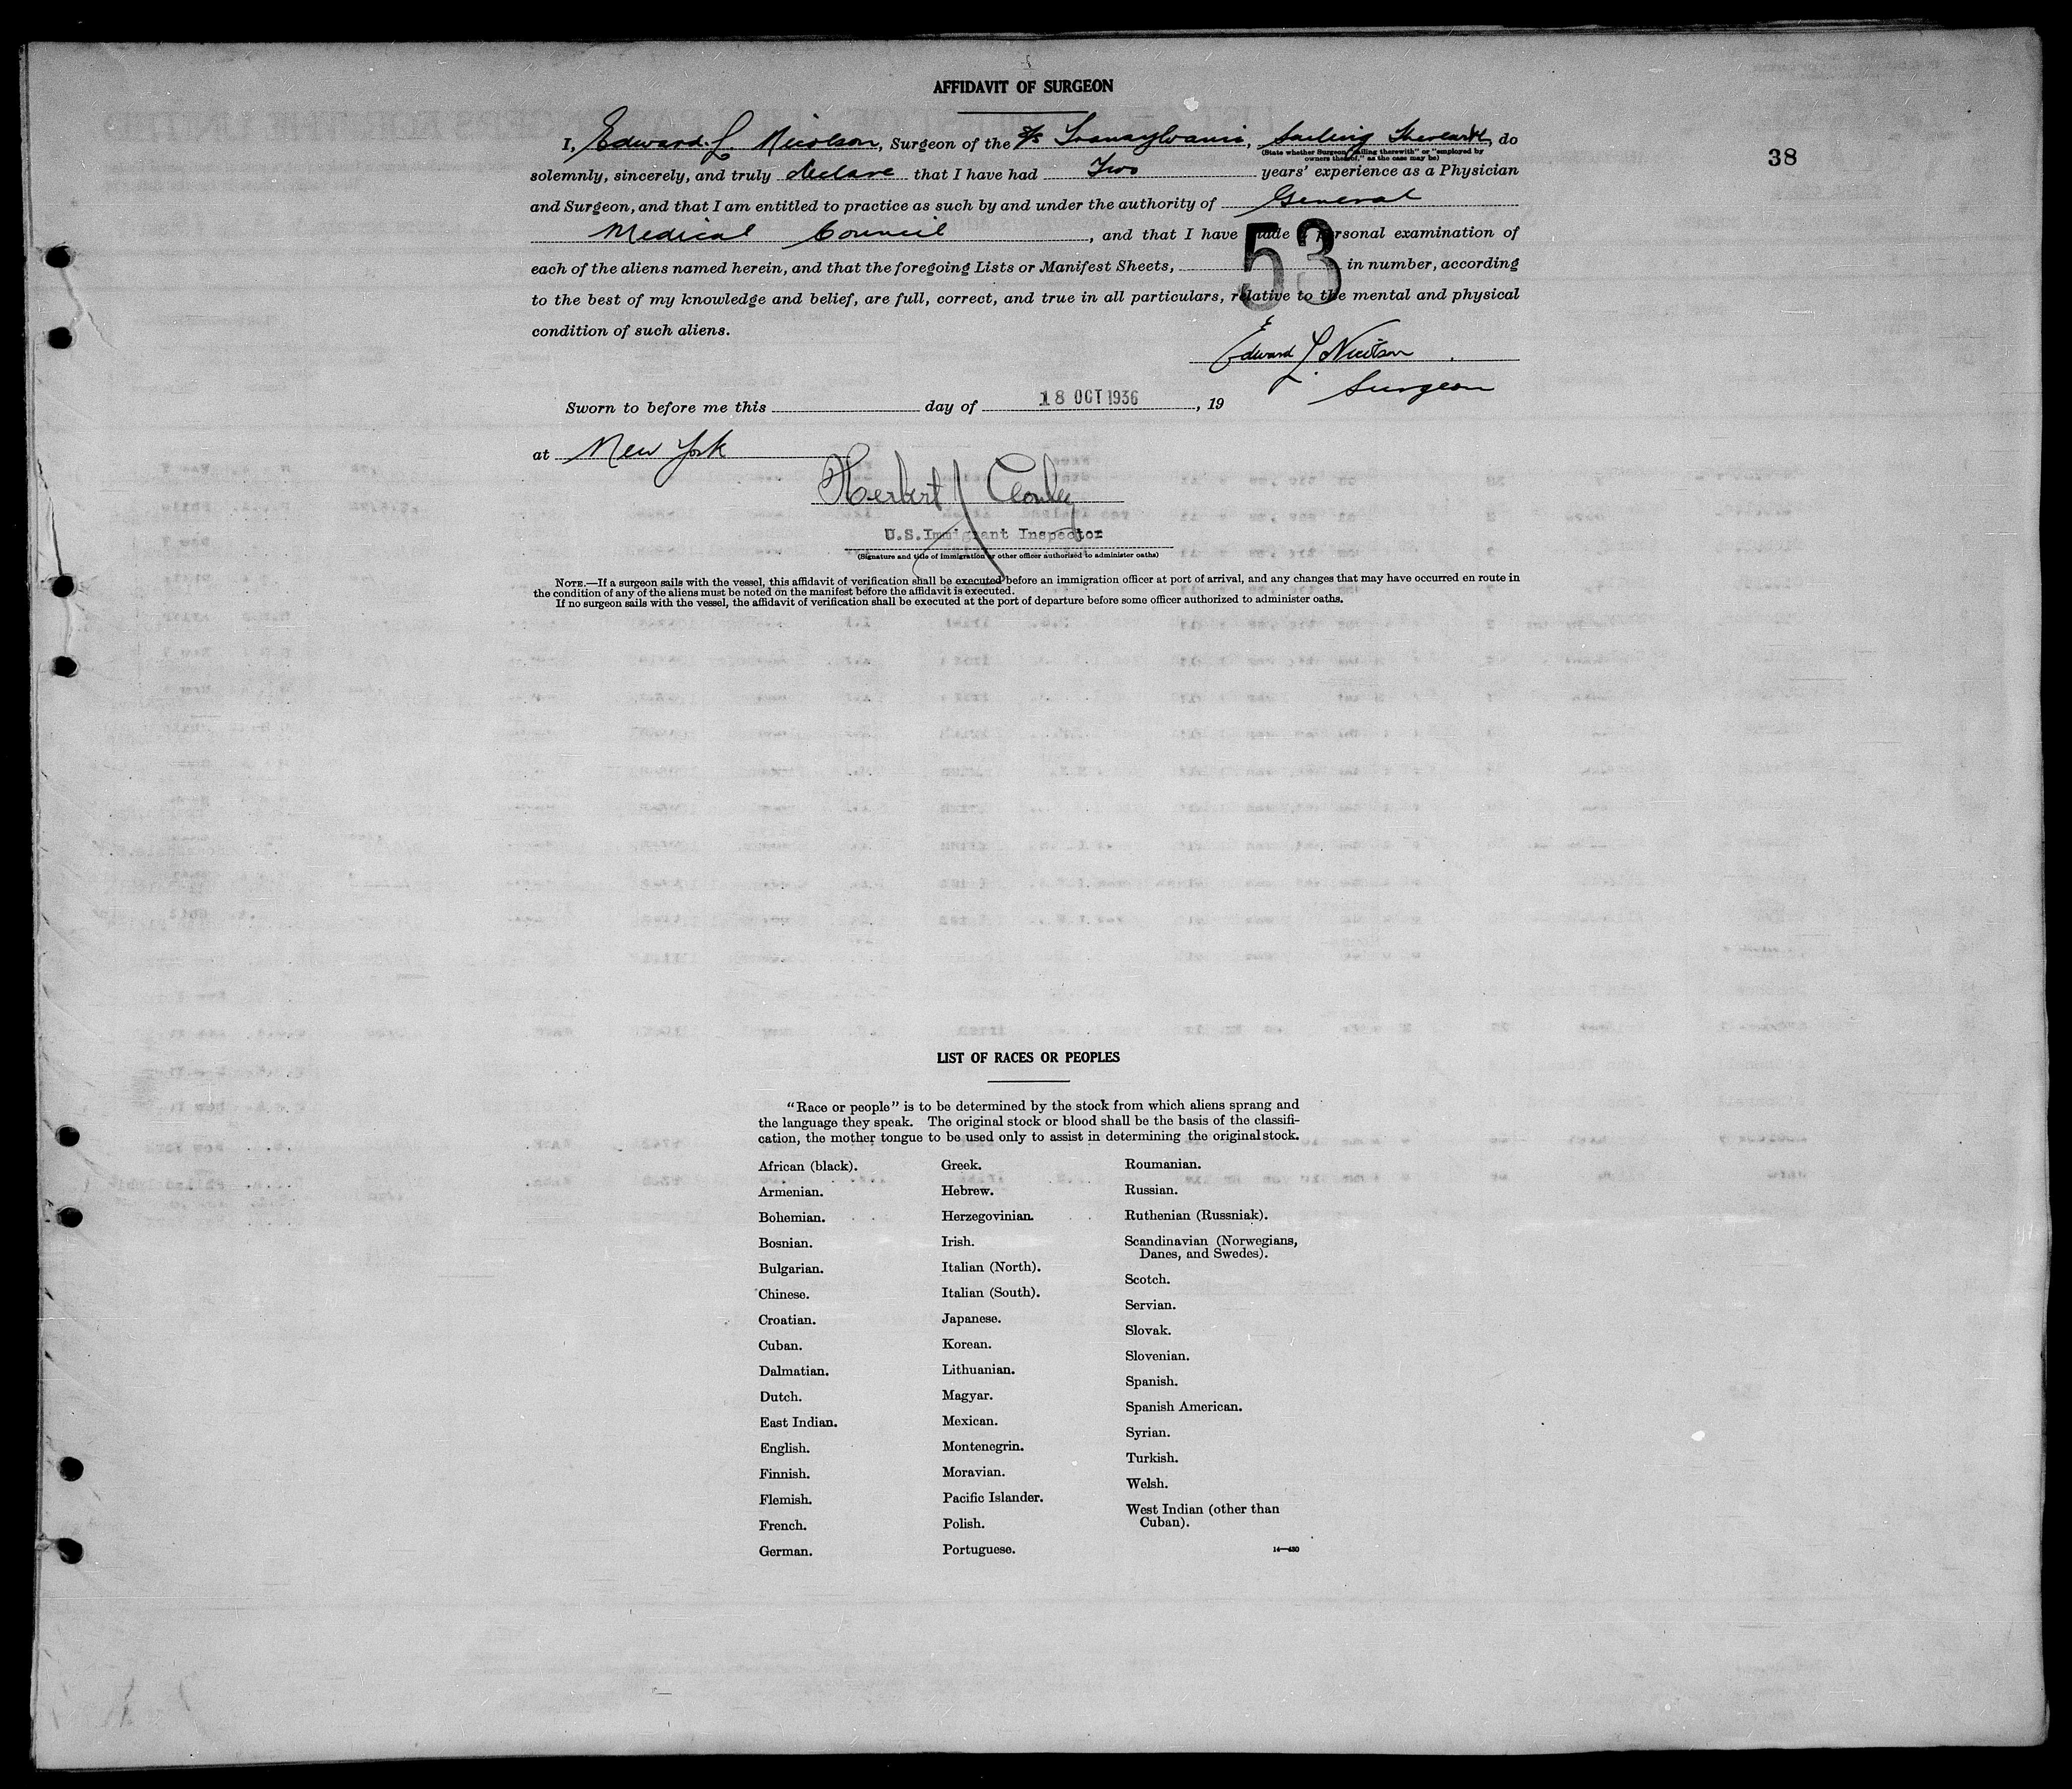 AFFIDAVIT OF SURGEON
38
I, Edward. L. Nicolson, Surgeon of the S/S Transylvania, Sailing Therewith, do
(State whether Surgeon "sailing therewith" or "employed by
owners thereof," as the case may be)
solemnly, sincerely, and truly declare that I have had Two years' experience as a Physician
and Surgeon, and that I am entitled to practice as such by and under the authority of General
Medical Council, and that I have made a personal examination of
53
each of the aliens named herein, and that the foregoing Lists or Manifest Sheets, in number, according
to the best of my knowledge and belief, are full, correct, and true in all particulars, relative to the mental and physical
condition of such aliens.
Edward L. Nicolson
Surgeon
Sworn to before me this day of 18 OCT 1936, 19
at New York
Herbert J
U.S.Immigrant Inspector
(Signature and title of immigration or other officer authorized to administer oaths)
NOTE.—If a surgeon sails with the vessel, this affidavit of verification shall be executed before an immigration officer at port of arrival, and any changes that may have occurred en route in
the condition of any of the aliens must be noted on the manifest before the affidavit is executed.
If no surgeon sails with the vessel, the affidavit of verification shall be executed at the port of departure before some officer authorized to administer oaths.
LIST OF RACES OR PEOPLES
"Race or people" is to be determined by the stock from which aliens sprang and
the language they speak. The original stock or blood shall be the basis of the classifi-
cation, the mother tongue to be used only to assist in determining the original stock.
African (black).
Armenian.
Bohemian.
Bosnian.
Bulgarian.
Chinese.
Croatian.
Cuban.
Dalmatian.
Dutch.
East Indian.
English.
Finnish.
Flemish.
French.
German.
Greek.
Hebrew.
Herzegovinian.
Irish.
Italian (North).
Italian (South).
Japanese.
Korean.
Lithuanian.
Magyar.
Mexican.
Montenegrin.
Moravian.
Pacific Islander.
Polish.
Portuguese.
Roumanian.
Russian.
Ruthenian (Russniak).
Scandinavian (Norwegians,
Danes, and Swedes).
Scotch.
Servian.
Slovak.
Slovenian.
Spanish.
Spanish American.
Syrian.
Turkish.
Welsh.
West Indian (other than
Cuban).
14—430